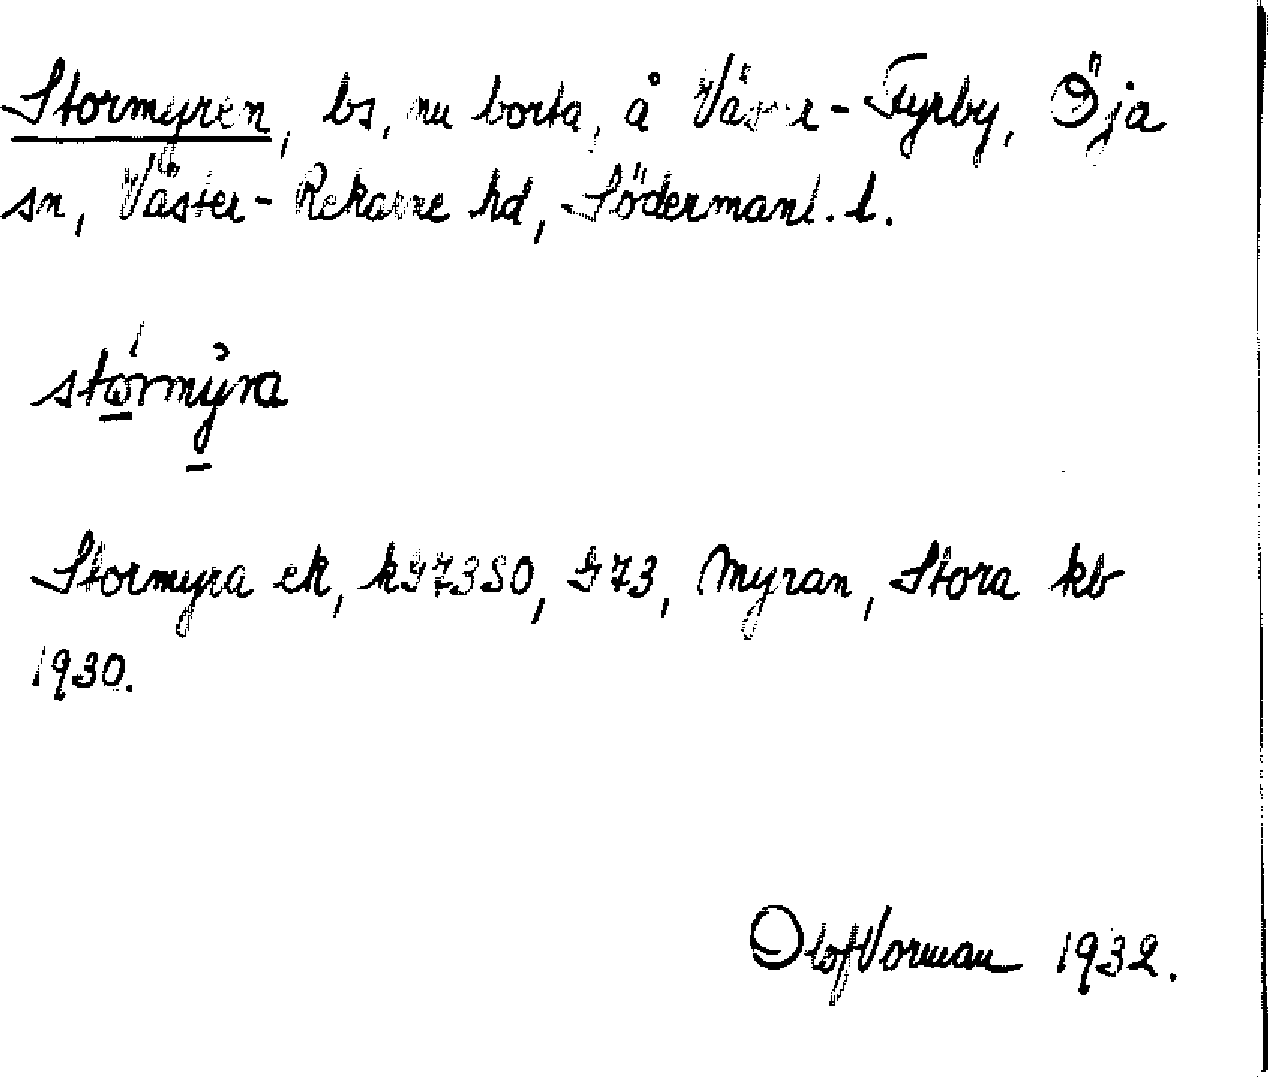 Stormyren, bs, nu borta, å Väster-Fyrby, Öja
sn, Väster-Rekarne hd, Södermanl. l.
stórmỳra
Stormyra ek, k973SO, 973, Myran, Stora kb
1930.
Olof Vorman 1932.